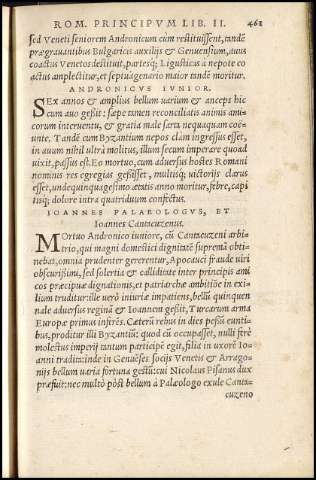 ROM. PRINCIPVM LIB. II. 461
sed Veneti seniorem Andronicum cùm restituissent, tandē
prægrauantibus Bulgaricis auxilijs & Genuensium, auus
coactus Venetos destituit, partesq; Ligusticas à nepote co
actus amplectitur, et septuagenario maior tandē moritur.
ANDRONICVS IVNIOR.
SEx annos & amplius bellum uarium & anceps hic
cum auo gessit: sæpe tamen reconciliatis animis ami-
corum interuentu, & gratia male sarta nequaquam coë-
unte. Tandē cum Byzantium nepos clam ingressus esset,
in auum nihil ultrà molitus, illum secum imperare quoad
uixit, passus est. Eo mortuo, cum aduersus hostes Romani
nominis res egregias gessisset, multisq; uictorijs clarus
esset, undequinquagesimo ætatis anno moritur, febre, capi
tisq; dolore intra quatriduum confectus.
IOANNES PALAEOLOGVS, ET
Ioannes Cantacuzenus.
MOrtuo Andronico iuniore, cū Cantacuzeni arbi-
trio, qui magni domestici dignitatē supremā obti-
nebat, omnia prudenter gererentur, Apocauci fraude uiri
obscurissimi, sed solertia & calliditate inter principis ami
cos præcipuæ dignationis, et patriarchæ ambitiōe in exi-
lium truditur: ille uerò iniuriæ impatiens, bellū quinquen
nale aduersus reginā & Ioannem gessit, Turcarum arma
Europæ primus inferēs. Cæterū rebus in dies pessū eunti-
bus, proditur illi Byzantiū: quod cū occupasset, nulli ferè
molestus imperij tantum participē egit, filia in uxorē Io-
anni tradita: inde in Genuēses socijs Venetis & Arrago-
nijs bellum uaria fortuna gestū: cui Nicolaus Pisanus dux
præfuit: nec multò pòst bellum à Palæologo exule Canta-
cuzeno